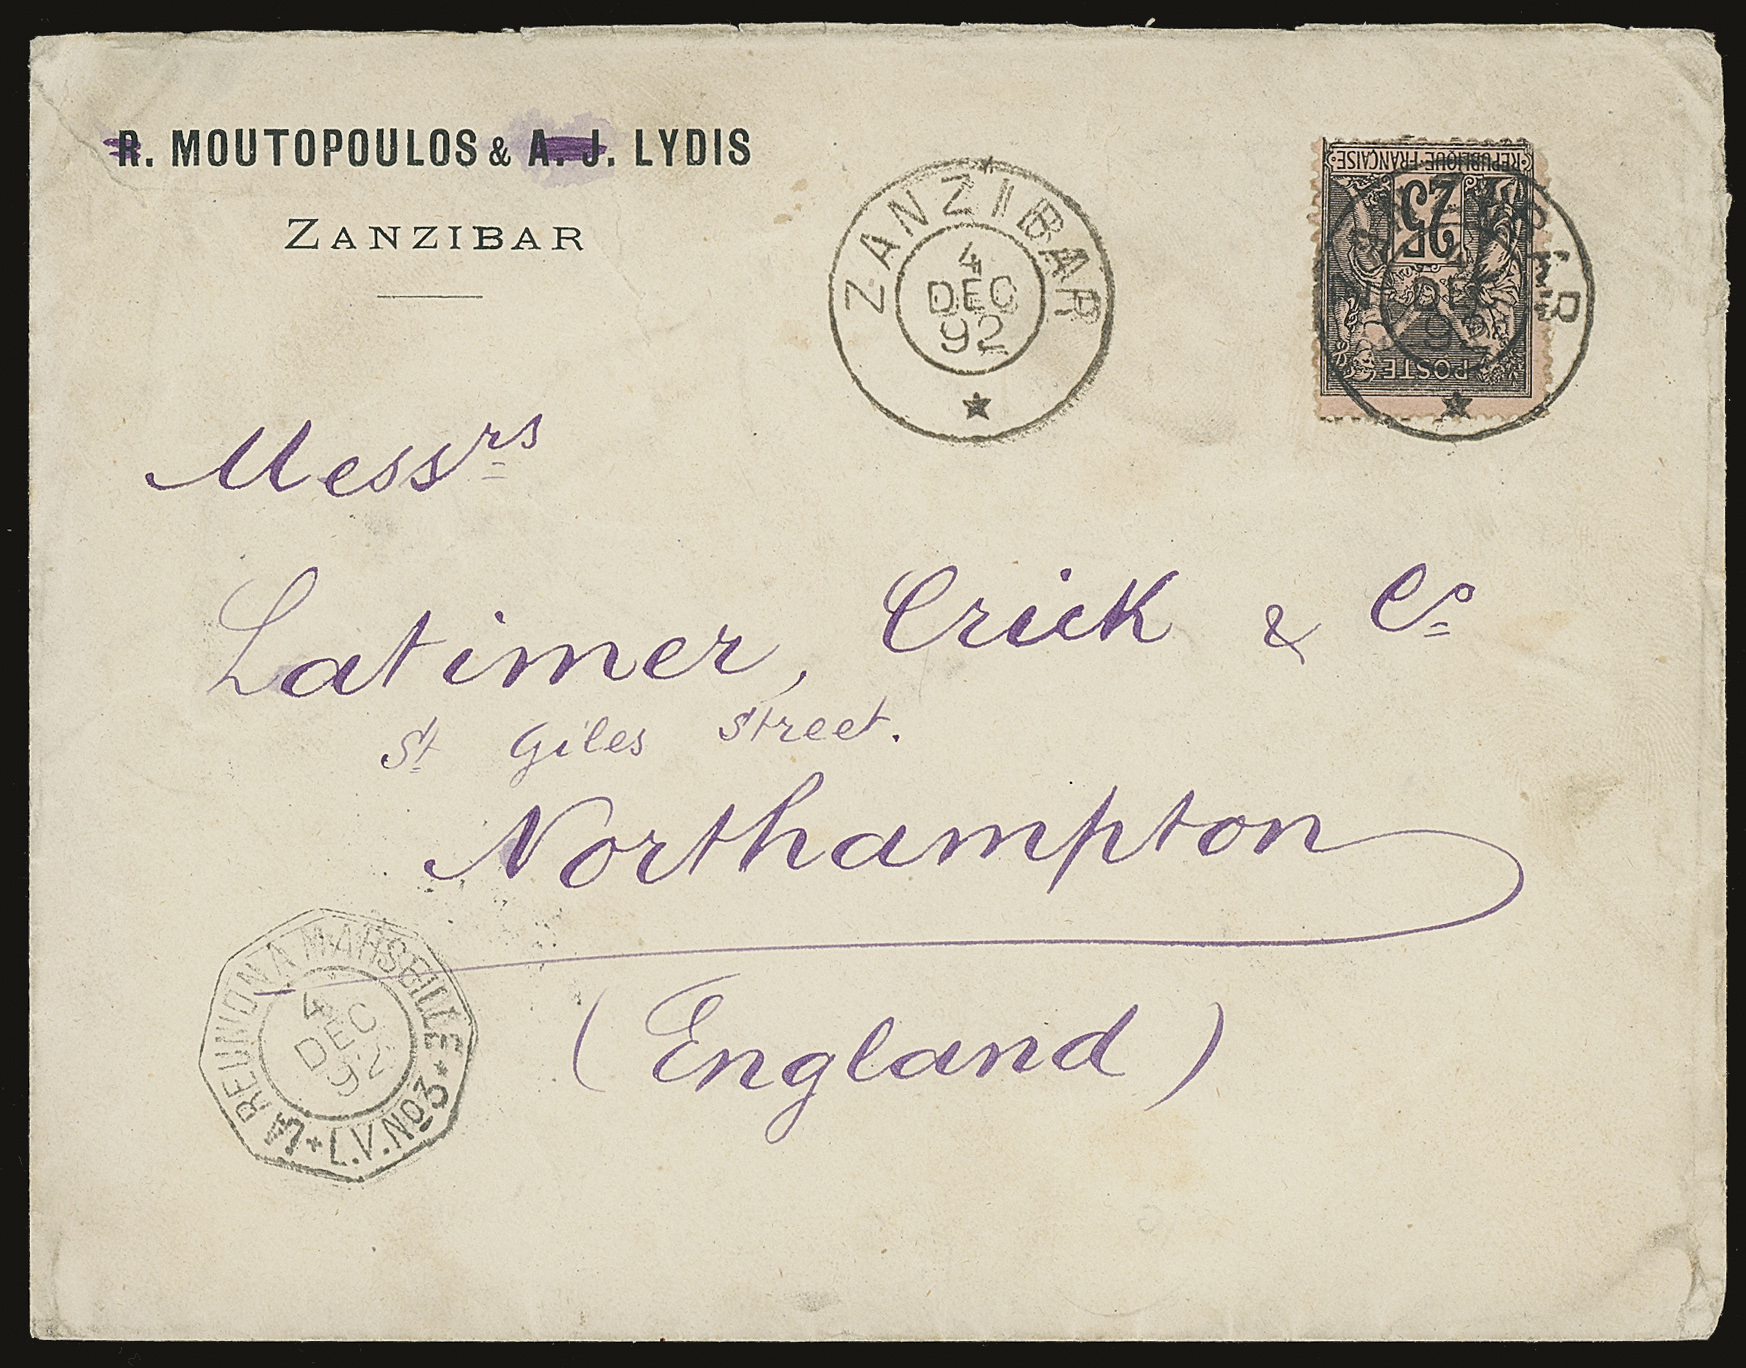 R. MOUTOPOULOS & A. J. LYDIS
ZANZIBAR
ZANZIBAR
4
DEC
92
REPUBLIQUE·FRANÇAISE
25
POSTE
DEC
92
Messrs
Latimer, Crick & Co
St Giles Street.
Northampton
(England)
LA REUNION A MARSEILLE
4
DEC
92
L.V.No3